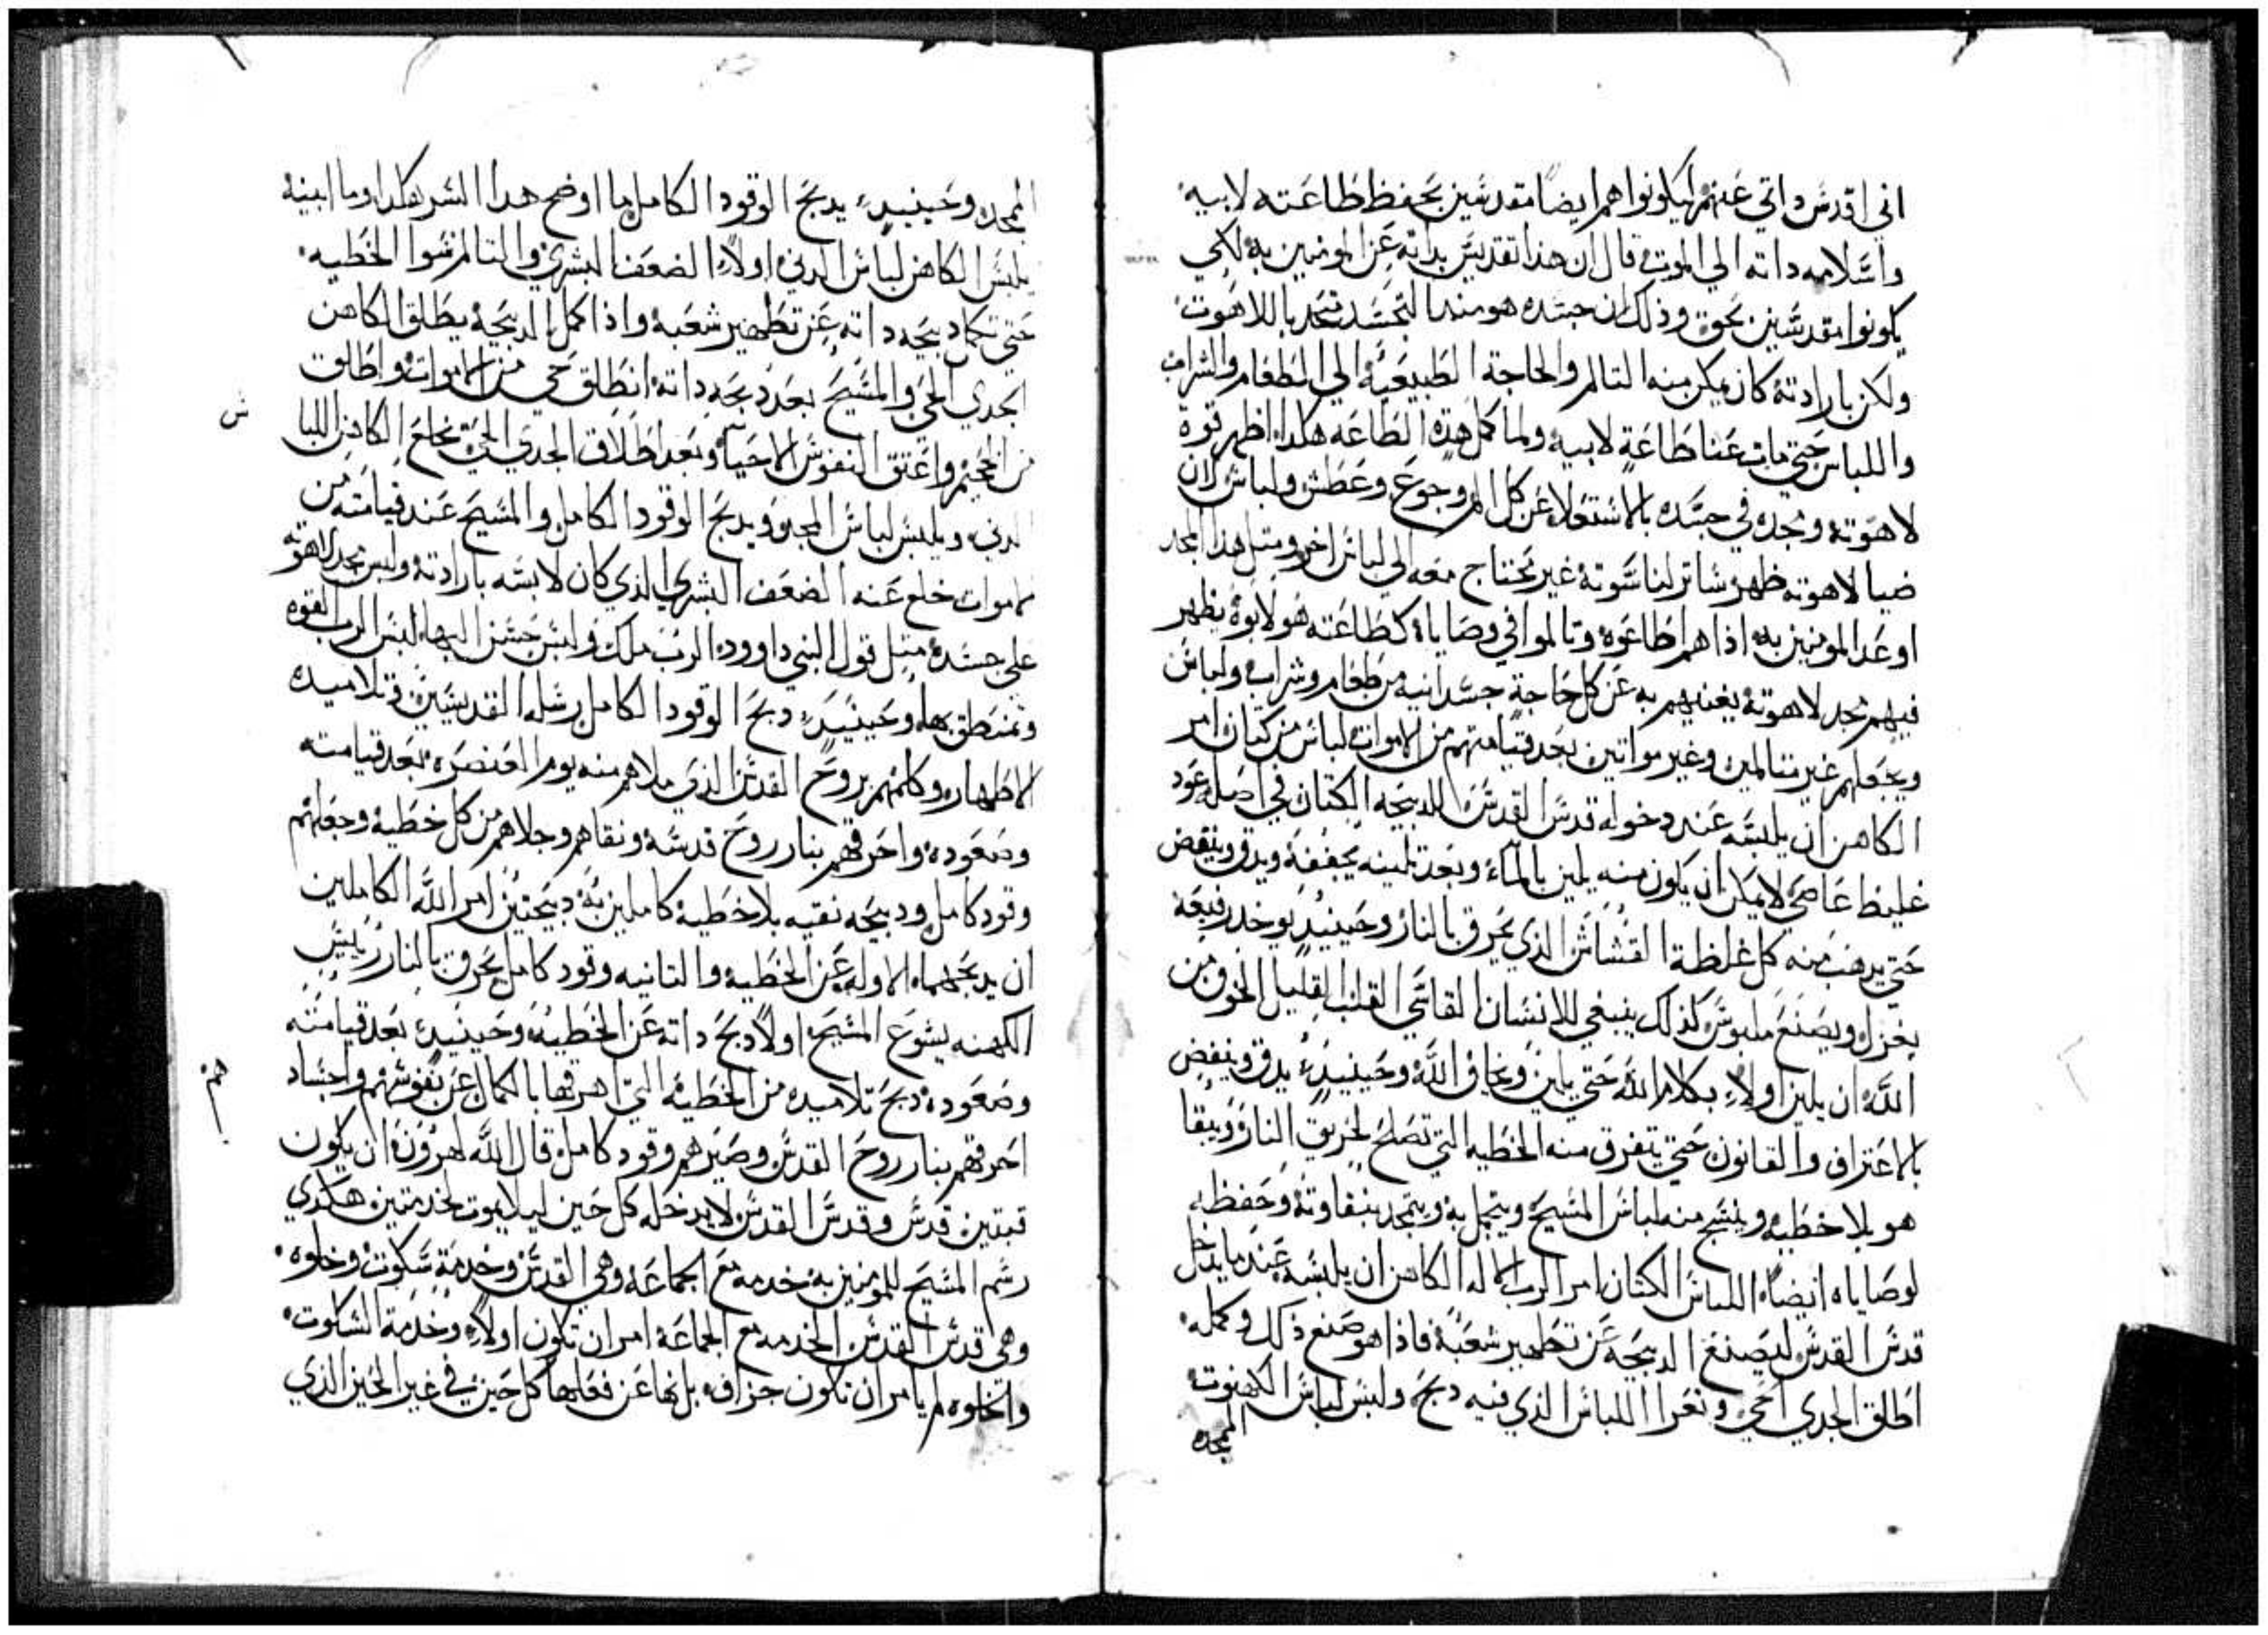 اني اقدس داتي عنهم ليكونوا هم ايضاً مقدسين بحفظ طاعته لابيه
واسلامه داته الي الموت قال ان هذا تقديس بداته عن المومنين به لكي
يكونوا مقدسين بحق وذلك ان جسده هو مند التجسد متحد باللاهوت
ولكن بارادته كان يمكن منه التالم والحاجة الطبيعية الي الطعام والشراب
واللباس حتي مات عنا طاعة لابيه ولما كمل هده الطاعه هكدا اظهر قوة
لاهوته ومجده في جسده بالاستعلا عن كل الم وجوع وعطش ولباس لان
ضيا لاهوته ظهر ساتر لناسوته غير محتاج معه الي لباس اخر ومتل هدا المجد
اوعد المومنين به اذا هم اطاعوه وتالموا في وصاياه كطاعته هو لابوه يظهر
فيهم مجد لاهوته يغنيهم به عن كل حاجة جسدانيه من طعام وشراب ولباس
ويجعلهم غير متالمين وغير مواتين بعد قيامتهم من الاموات لباس من كتان امر
الكاهن ان يلبسه عند دخوله قدس القدس للدبيحه الكتان في اصله عود
غليظ عاصي لا يمكن ان يكون منه يلين بالمآء وبعد تليينه يجففه ويدق وينفض
حتي يدهب منه كل غلظة القشاش الذي يحرق بالنار وحينيد يوخد رفيعه
يغزل ويصنع ملبوس كذلك ينبغي للانسان القاسي القلب القليل الخوف من
الله ان يلين اولاً بكلام الله حتي يلين ويخاف الله وحينيد يدق وينفض
بالاعتراف والقانون حتي يتفرق منه الخطيه التي تصلح لحريق النار ويبقا
هو بلا خطيه وينسج منه لباس المسيح ويتجمل به ويتمجد بنقاوته وحفظه
لوصاياه ايضاً اللباس الكتان امر الرب الاله الكاهن ان يلبسه عند ما يدخل
قدس القدس ليصنع الدبيحه عن تطهير شعبه فاذا هو صنع ذلك وكمله
اطلق الجدي الحي وتعرا اللباس الذي فيه دبح ولبس لباس الكهنوت
الممجده
الممجده وحينيد يدبح الوقود الكامل ما اوضح هدا السر هكدا وما ابينه
يلبس الكاهن لباس الدني اولاً الضعف البشري والتالم سوا الخطيه
حتي تكمل دبيحه داته عن تطهير شعبه واذا كمل الدبيحه يطلق الكاهن
الجدي الحي والمسيح بعد دبحه داته انطلق حي من الاموات واطلق
من الجحيم واعتق النفوس الاحيآ وبعد اطلاق الجدي الحي يخلع الكاهن اللبا
س
الدني ويلبس لباس المجد ويدبح الوقود الكامل والمسيح عند قيامته من
الاموات خلع عنه الضعف البشري الذي كان لابسه بارادته ولبس مجد لاهوته
علي جسده متل قول النبي داوود الرب ملك ولبس حسن البها لبس الرب القوه
وتمنطق بها وحينيد دبح الوقود الكامل رسله القديسين وتلاميده
الاطهار وكلهم بروح القدس الذي ملاهم منه يوم العنصره بعد قيامته
وصعوده واحرقهم بنار روح قدسه ونقاهم وجلاهم من كل خطيه وجعلهم
وقود كامل ودبيحه نقيه بلا خطيه كاملين به دبيحتين امر الله الكاملين
ان يدبحهما الاوله عن الخطيه والتانيه وقود كامل يحرق بالنار رييس
الكهنه يشوع المسيح اولاً دبح داته عن الخطيه وحينيد بعد قيامته
وصعوده دبح تلاميده من الخطيه التي اهرقها بالكمال عن نفوسهم واجساد
هم
احرقهم بنار روح القدس وصيرهم وقود كامل قال الله لهرون ان يكون
قبتين قدس وقدس القدس لا يدخله كل حين ليلا يموت خدمتين هكدي
رسم المسيح للمومنين به خدمه مع الجماعه وهي القدس وخدمة سكوت وخلوه
وهي قدس القدس الخدمه مع الجماعه امر ان تكون اولاً وخدمة السكوت
والخلوه لم يامر ان تكون جزاف بل نها عن فعلها كل حين في غير الحين الذي